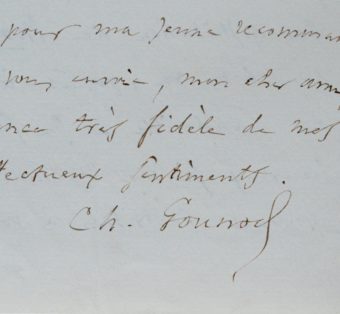 pour ma jeune recomman
vous envoie, mon cher am
ance très fidèle de mes
ffectueux sentiments.
Ch. Gounod